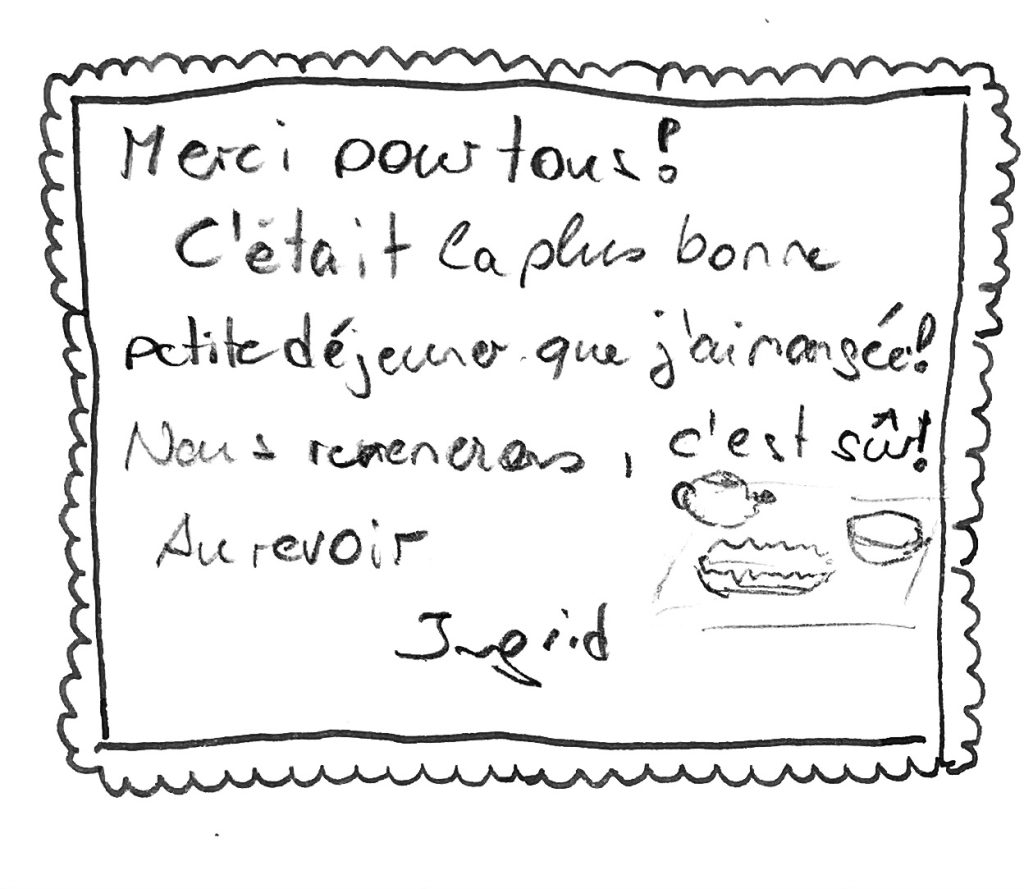 Merci pour tous!
C'était la plus bonne
petite déjeuner que j'ai mangée!
Nous remenerons, c'est sûr!
Au revoir
Ingrid